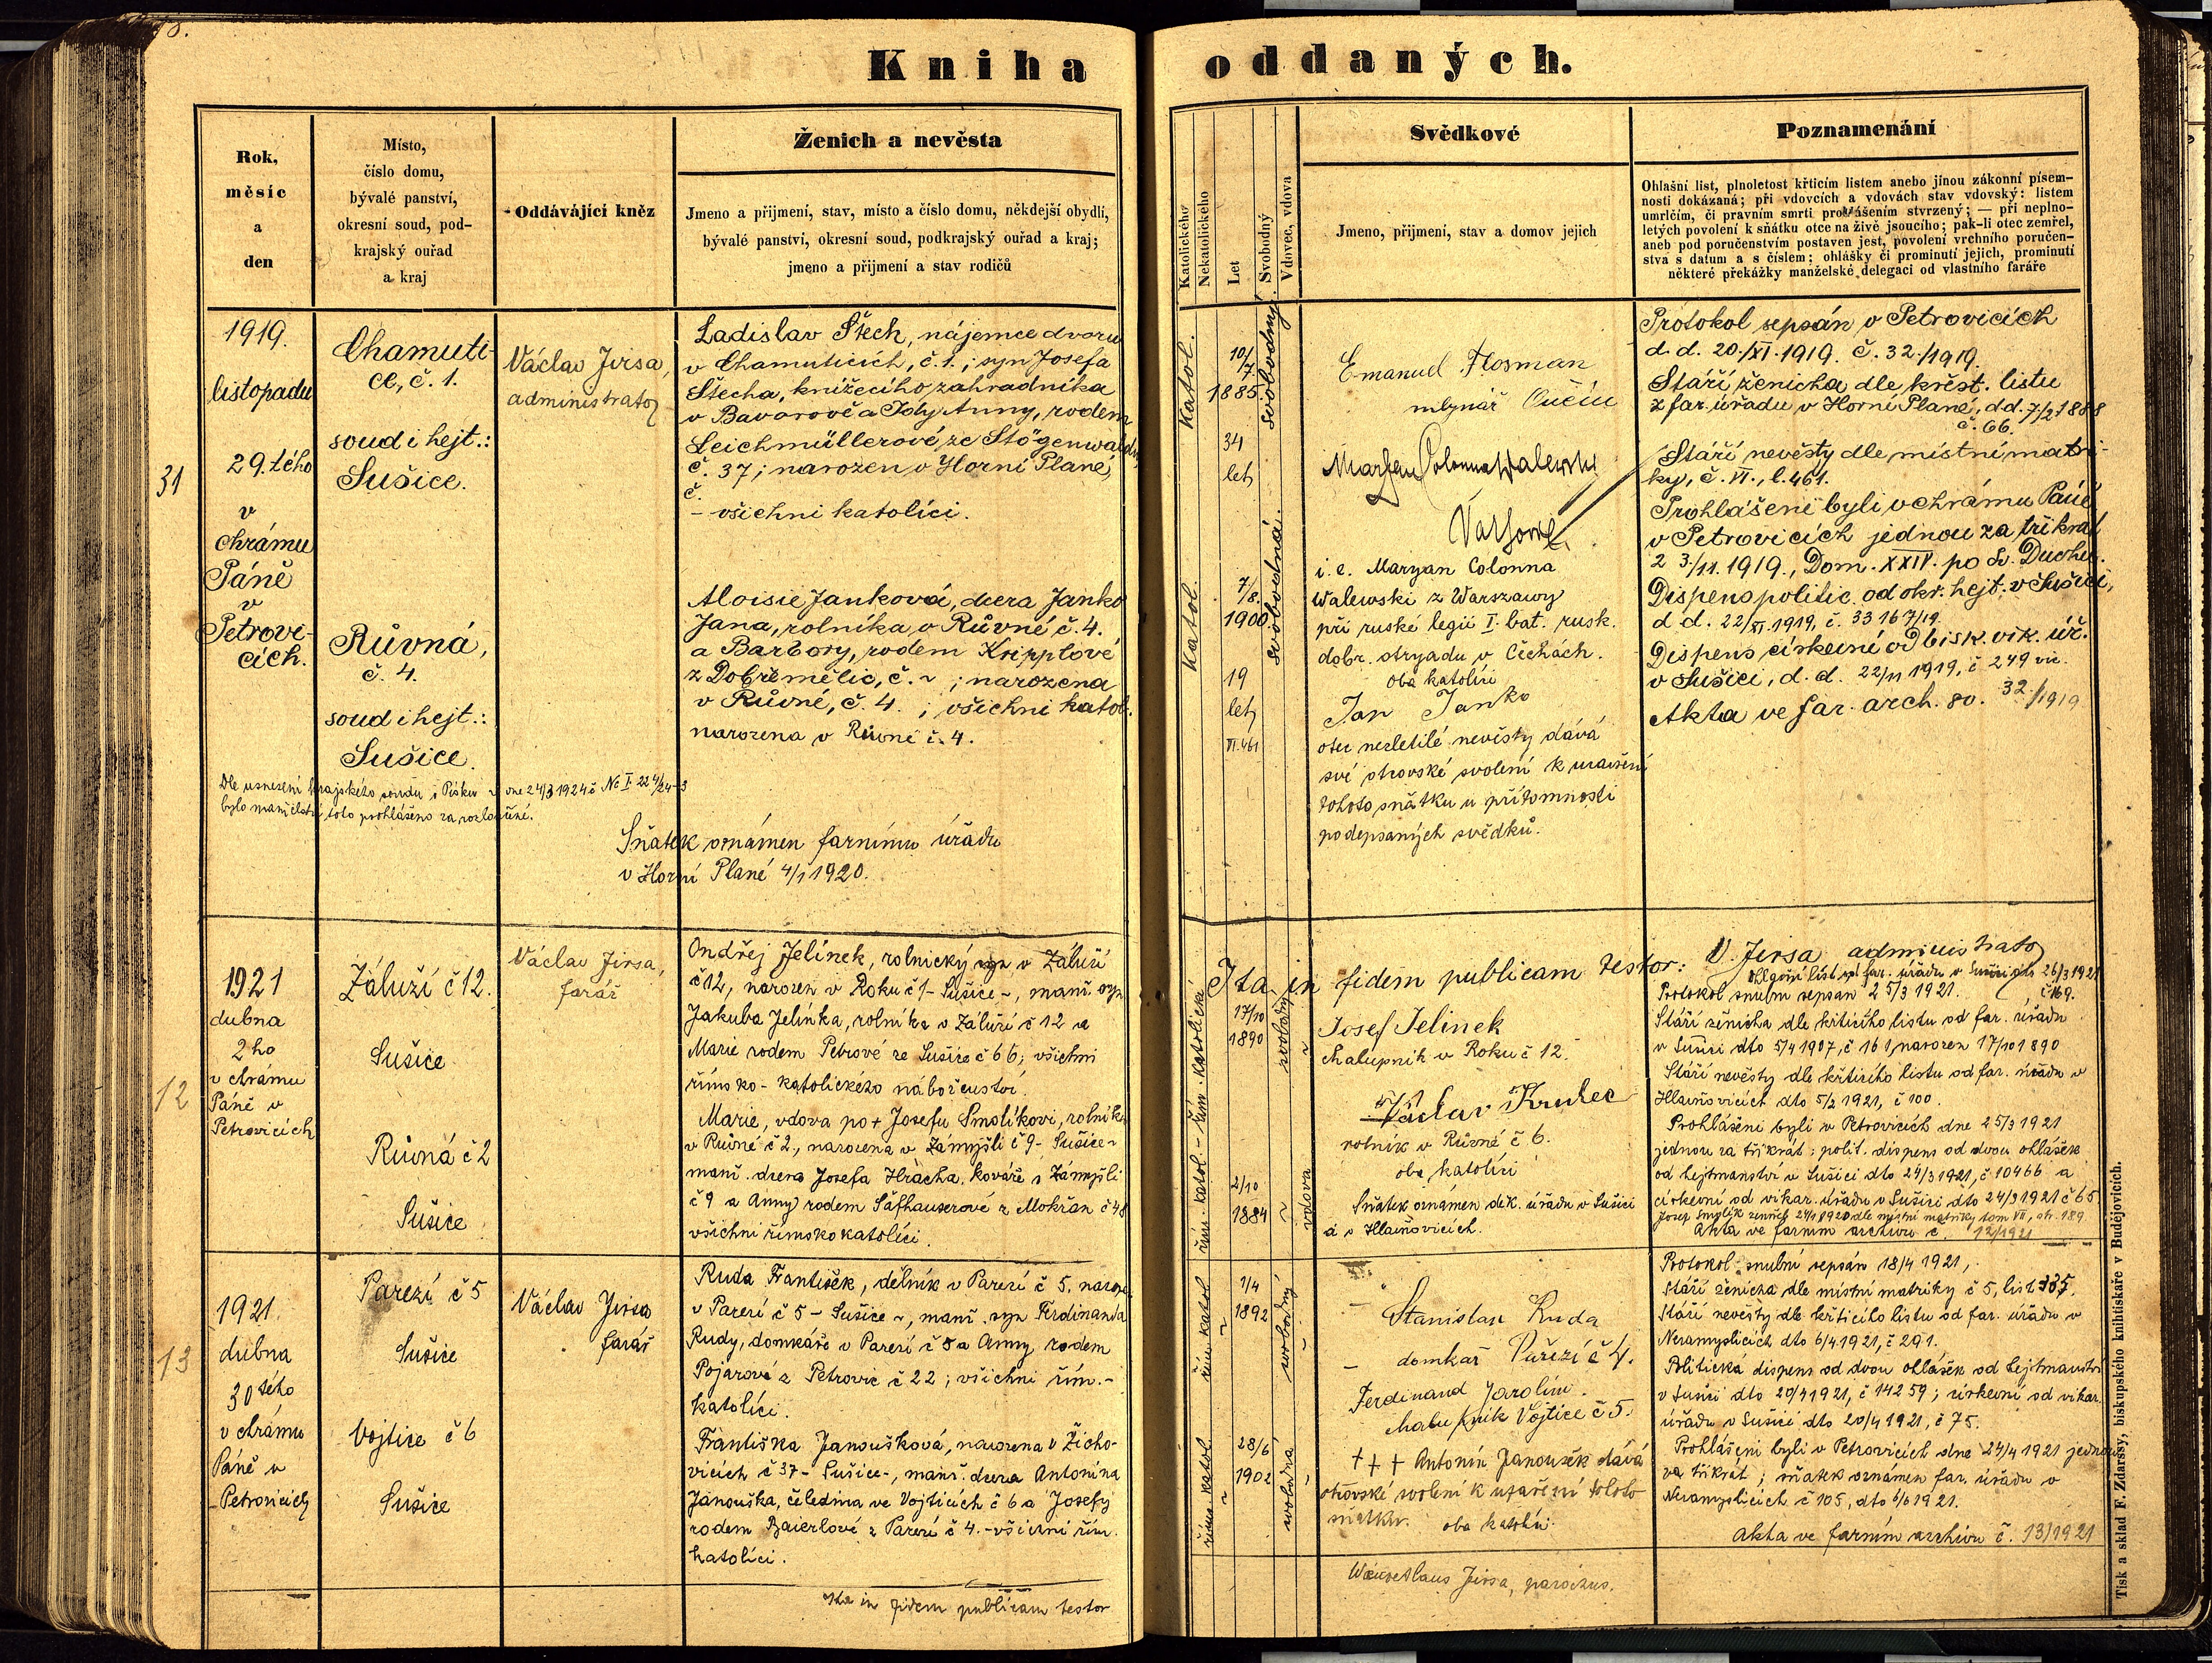 Kniha oddaných.
Rok,
měsíc
a
den
Místo,
číslo domu,
bývalé panství,
okresní soud, pod-
krajský ouřad
a kraj
Oddávající kněz
Ženich a nevěsta
Jmeno a přijmení, stav, místo a číslo domu, někdejší obydlí,
bývalé panství, okresní soud, podkrajský ouřad a kraj;
jmeno a přijmení a stav rodičů
Katolického
Nekatolického
Let
Svobodný
Vdovec, vdova
Svědkové
Jmeno, přijmení, stav a domov jejich
Poznamenání
Ohlašní list, plnoletost křticím listem anebo jinou zákonní písem-
nosti dokázaná; při vdovcích a vdovách stav vdovský: listem
umrlčím, či pravním smrti prohlášením stvrzený; — při neplno-
letých povolení k sňátku otce na živě jsoucího; pak-li otec zemřel,
aneb pod poručenstvím postaven jest, povolení vrchního poručen-
stva s datum a s číslem; ohlášky či prominutí jejich, prominutí
některé překážky manželské, delegaci od vlastního faráře
31
1919.
listopadu
29. tého
v
chrámu
Páně
v
Petrovi-
cích.
Chamuti-
ce, č. 1.
soud i hejt.:
Sušice.
Růvná,
č. 4.
soud i hejt.:
Sušice.
Václav Jirsa,
administrator
Ladislav Štech, nájemce dvoru
v Chamuticích, č. 1.; syn Josefa
Štecha, knížecího zahradníka
v Bavorově a Idy Anny, rodem
Leichmüllerové ze Stögenwaldu,
č. 37; narozen v Horní Plané,
č.
- všichni katolíci.
Aloisie Janková, dcera Janko
Jana, rolníka v Růvné č. 4.
a Barbory, rodem Kripplové
z Dobřemělic, č. ~ ; narozena
v Růvné, č. 4. ; všichni katol.
narozena v Růvné č. 4.
Dle usnesení krajského soudu v Písku ze dne 24/3 1924 č Nc I 224/24-3
bylo manželství toto prohlášeno za rozloučené.
Sňatek oznámen farnímu úřadu
v Horní Plané 4/1 1920.
Katol.
10/7
1885
34
let
svobodný
Katol.
7/8.
1900
19
let
VI.461
svobodná.
Emanuel Flosman
mlynář
Maryan Colonna Walewski
i. e. Maryan Colonna
Walewski z Warszawy
při ruské legii I. bat. rusk.
dobr. otryadu v Čechách.
oba katolíci
Jan Janko
otec nezletilé nevěsty dává
své otcovské svolení k uzavření
tohoto sňátku u přítomnosti
podepsaných svědků.
Protokol sepsán v Petrovicích
d. d. 20./XI. 1919. č. 32./1919.
Stáří ženicha dle křest. listu
z far. úřadu v Horní Plané, d.d. 7./2 1888
č. 66.
Stáří nevěsty dle místní matri-
ky, č. VI., l. 461.
Prohlášeni byli v chrámu Páně
v Petrovicích jednou za třikrát
23./11. 1919., Dom. XXIV. po Sv. Duchu.
Dispens politic. od okr. hejt. v Sušici,
d. d. 22/XI. 1919, č. 33167/19.
Dispens církevní od bisk. vik. úř.
v Sušici, d. d. 22/11 1919, č 249 vic.
Akta ve far. arch. 80. 32./1919
Ita in fidem publicam testor: V. Jirsa administrator
12
1921
dubna
2ho
v chrámu
Páně v
Petrovicích
Záluží č 12.
Sušice
Růvná č 2
Sušice
Václav Jirsa,
farář
Ondřej Jelínek, rolnický syn v Záluží
č 12, narozen v Roku č 1 - Sušice -, manž. syn
Jakuba Jelínka, rolníka v Záluží č 12 a
Marie rodem Petrové ze Sušice č 66; všichni
římsko-katolického náboženství.
Marie, vdova po + Josefu Smolíkovi, rolníku
v Růvné č 2, narozena v Zámyšli č 9 - Sušice -
manž. dcera Josefa Hracha, kováře v Zámyšli
č 9 a Anny rodem Šafhauserové z Mokřan č 48
všichni římskokatolíci.
řím. katol - řím. katolické
17/10
1890
svobodný
2/10
1884
vdova
Josef Jelinek
chalupnik v Roku č 12.
Václav Krubec
rolník v Růvné č 6.
oba katolíci
Sňatek oznámen děk. úřadu v Sušici
a v Hlavňovicích.
Ohlašní list od far. úřadu v Sušici dto 26/3 1921
č 169.
Protokol snubní sepsán 25/3 1921.
Stáří ženicha dle křticího listu od far. úřadu
v Sušici dto 5/4 1907, č 161, narozen 17/10 1890
Stáří nevěsty dle křticího listu od far. úřadu v
Hlavňovicích dto 5/2 1921, č 100.
Prohlášeni byli v Petrovicích dne 25/3 1921
jednou za třikrát; polit. dispens od dvou ohlášek
od hejtmanství v Sušici dto 24/3 1921, č 10466 a
církevní od vikar. úřadu v Sušici dto 24/3 1921 č 65
Josef Smolík zemřel dle místní matriky tom VII, str. 189.
Akta ve farním archivu č. 12/1921
13
1921
dubna
30tého
v chrámu
Páně v
Petrovicích
Parezí č 5
Sušice
Vojtice č 6
Sušice
Václav Jirsa
farář
Ruda František, dělník v Parezí č 5, naroze.
v Parezí č 5 - Sušice ~, manž. syn Ferdinanda
Rudy, domkáře v Parezí č 5 a Anny rodem
Pojarové z Petrovic č 22; všichni řím.-
katolíci.
Františka Janoušková, narozena v Žicho-
vicích č 37 - Sušice -, manž. dcera Antonína
Janouška, čeledína ve Vojticích č 6 a Josefy
rodem Baierlové z Parezí č 4. - všichni řím.
katolíci.
Ita in fidem publicam testor
řím. katol
1/4
1892
svobodný
řím. katol
28/6
1902
svobodná
Stanislav Ruda
domkař Pařezí č 4.
Ferdinand Jarolím.
chalupník Vojtice č 5.
+ + + Antonín Janoušek dává
otcovské svolení k uzavření tohoto
sňatku. oba katolíci
Wenceslaus Jirsa, parochus.
Protokol snubní sepsán 18/4 1921,
Stáří ženicha dle místní matriky č 5, list 335.
Stáří nevěsty dle křticího listu od far. úřadu v
Nezamyslicích dto 6/4 1921, č 291.
Politická dispens od dvou ohlášek od hejtmanství
v Sušici dto 20/4 1921, č 14259; církevní od vikar.
úřadu v Sušici dto 20/4 1921, č 75.
Prohlášeni byli v Petrovicích dne 24/4 1921 jednou
za třikrát; sňatek oznámen far. úřadu v
Nezamyslicích č 105, dto 6/6 1921.
Akta ve farním archivu č. 13/1921
Tisk a sklad F. Zdarssy, biskupského knihtiskaře v Budějovicích.